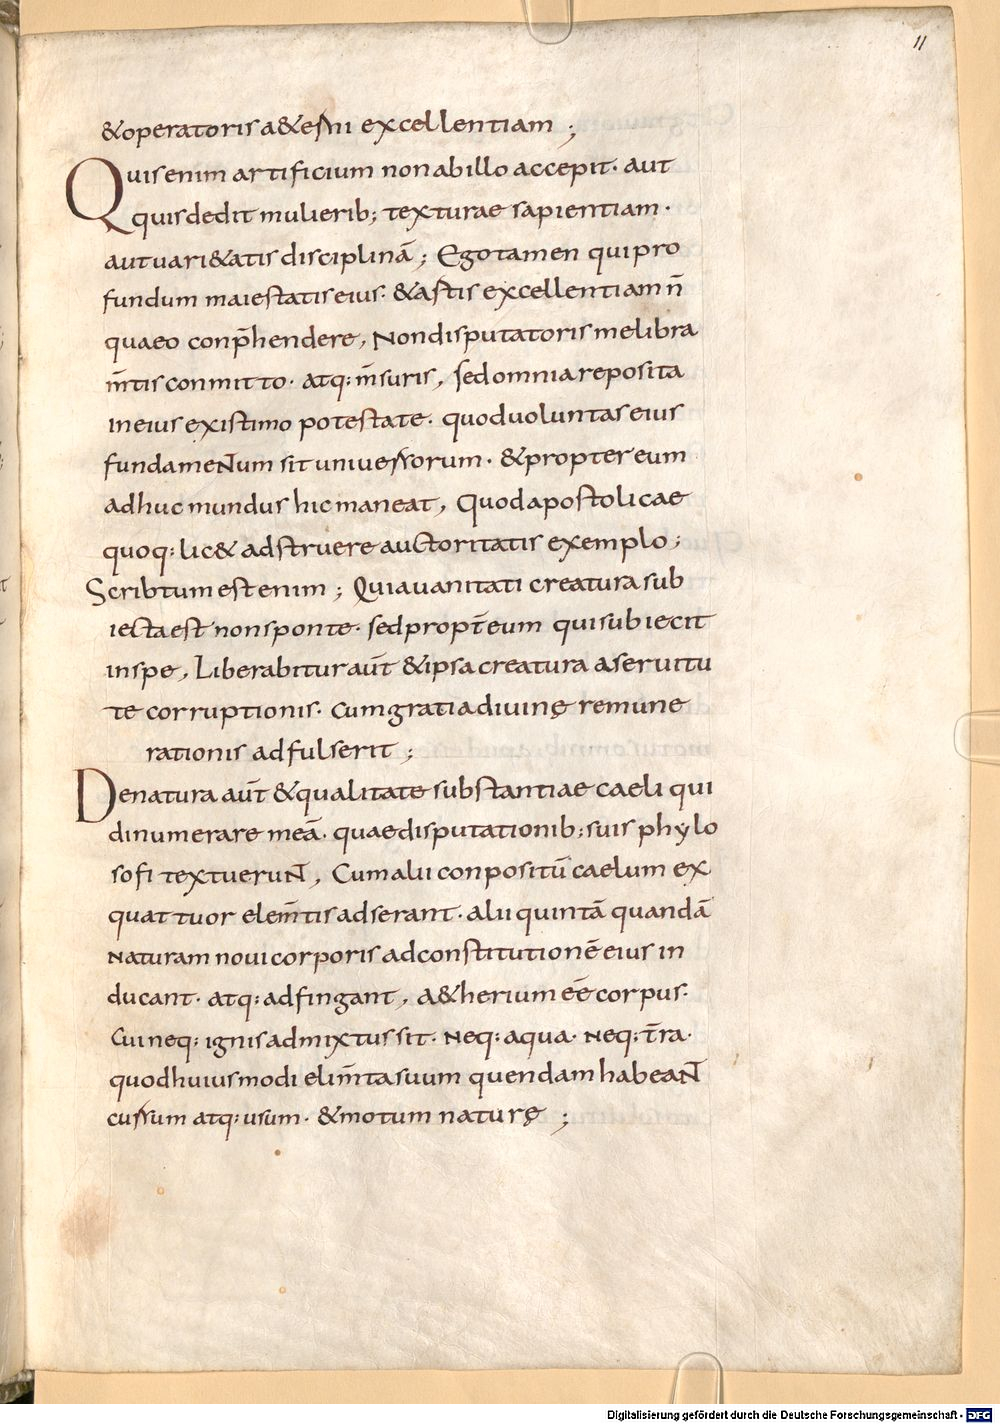 11
&operatoris a&erni excellentiam ;
Quis enim artificium non abillo accepit. aut
quis dedit mulierib; texturae sapientiam.
aut uari&atis disciplinā ; Ego tamen qui pro
fundum maiestatis eius. & artis excellentiam n̄
quaeo conp̄hendere, Non disputatoris me libra
m̄tis conmitto. atq: m̄suris, sed omnia reposita
in eius existimo potestate. quod uoluntas eius
fundamentum sit uniuersorum. & propter eum
adhuc mundus hic maneat, Quod apostolicae
quoq: lic& adstruere auctoritatis exemplo;
Scribtum est enim ; Quia uanitati creatura sub
iecta est non sponte. sed propt̄ eum qui subiecit
in spe, Liberabitur aūt & ipsa creatura a seruitu
te corruptionis. Cum gratia diuinę remune
rationis adfulserit ;
De natura aūt & qualitate substantiae caeli qui
dinumerare meā. quae disputationib; suis phylo
sofi textuerunt, Cum alii conpositū caelum ex
quattuor elem̄tis adserant. alii quintā quandā
naturam noui corporis ad constitutionē eius in
ducant. atq: adfingant, A&herium eē corpus.
Cui neq: ignis admixtus sit. neq: aqua. neq: t̄ra.
quod huiusmodi elim̄ta suum quendam habeant
cursum atq: usum. & motum naturę ;
Digitalisierung gefördert durch die Deutsche Forschungsgemeinschaft - DFG